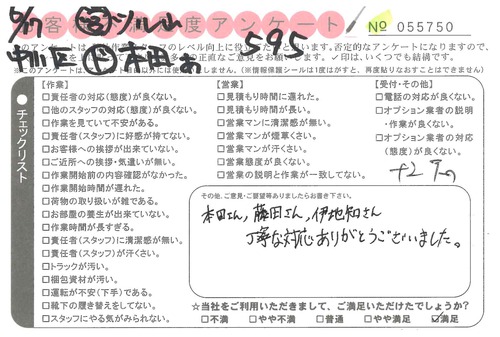 6/17
お客様満足度アンケート
No 055750
中川区 本田
595
【作業】
□責任者の対応(態度)が良くない。
□他のスタッフの対応(態度)が良くない。
□作業を見ていて不安がある。
□責任者(スタッフ)に好感が持てない。
□お客様への挨拶が出来ていない。
□ご近所への挨拶・気遣いが無い。
□作業開始前の内容確認がなかった。
□作業開始時間が遅れた。
□荷物の取り扱いが雑である。
□お部屋の養生が出来ていない。
□作業時間が長すぎる。
□責任者(スタッフ)に清潔感が無い。
□責任者(スタッフ)が汗くさい。
□トラックが汚い。
□梱包資材が汚い。
□運転が不安(下手)である。
□靴下の履き替えをしてない。
□スタッフにやる気がみられない。
チェックリスト
【営業】
□見積もり時間に遅れた。
□見積もり時間が長い。
□営業マンに清潔感が無い。
□営業マンが煙草くさい。
□営業マンが汗くさい。
□営業態度が良くない。
□営業の説明と作業が一致してない。
【受付・その他】
□電話の対応が良くない。
□オプション業者の説明
・作業が良くない。
□オプション業者の対応
(態度)が良くない。
その他、ご意見・ご要望等ありましたらお書き下さい。
本田さん, 藤田さん, 伊地知さん
丁寧な対応ありがとうございました。
☆当社をご利用いただきまして、ご満足いただけたでしょうか?
□不満 □やや不満 □普通 □やや満足 ☑満足